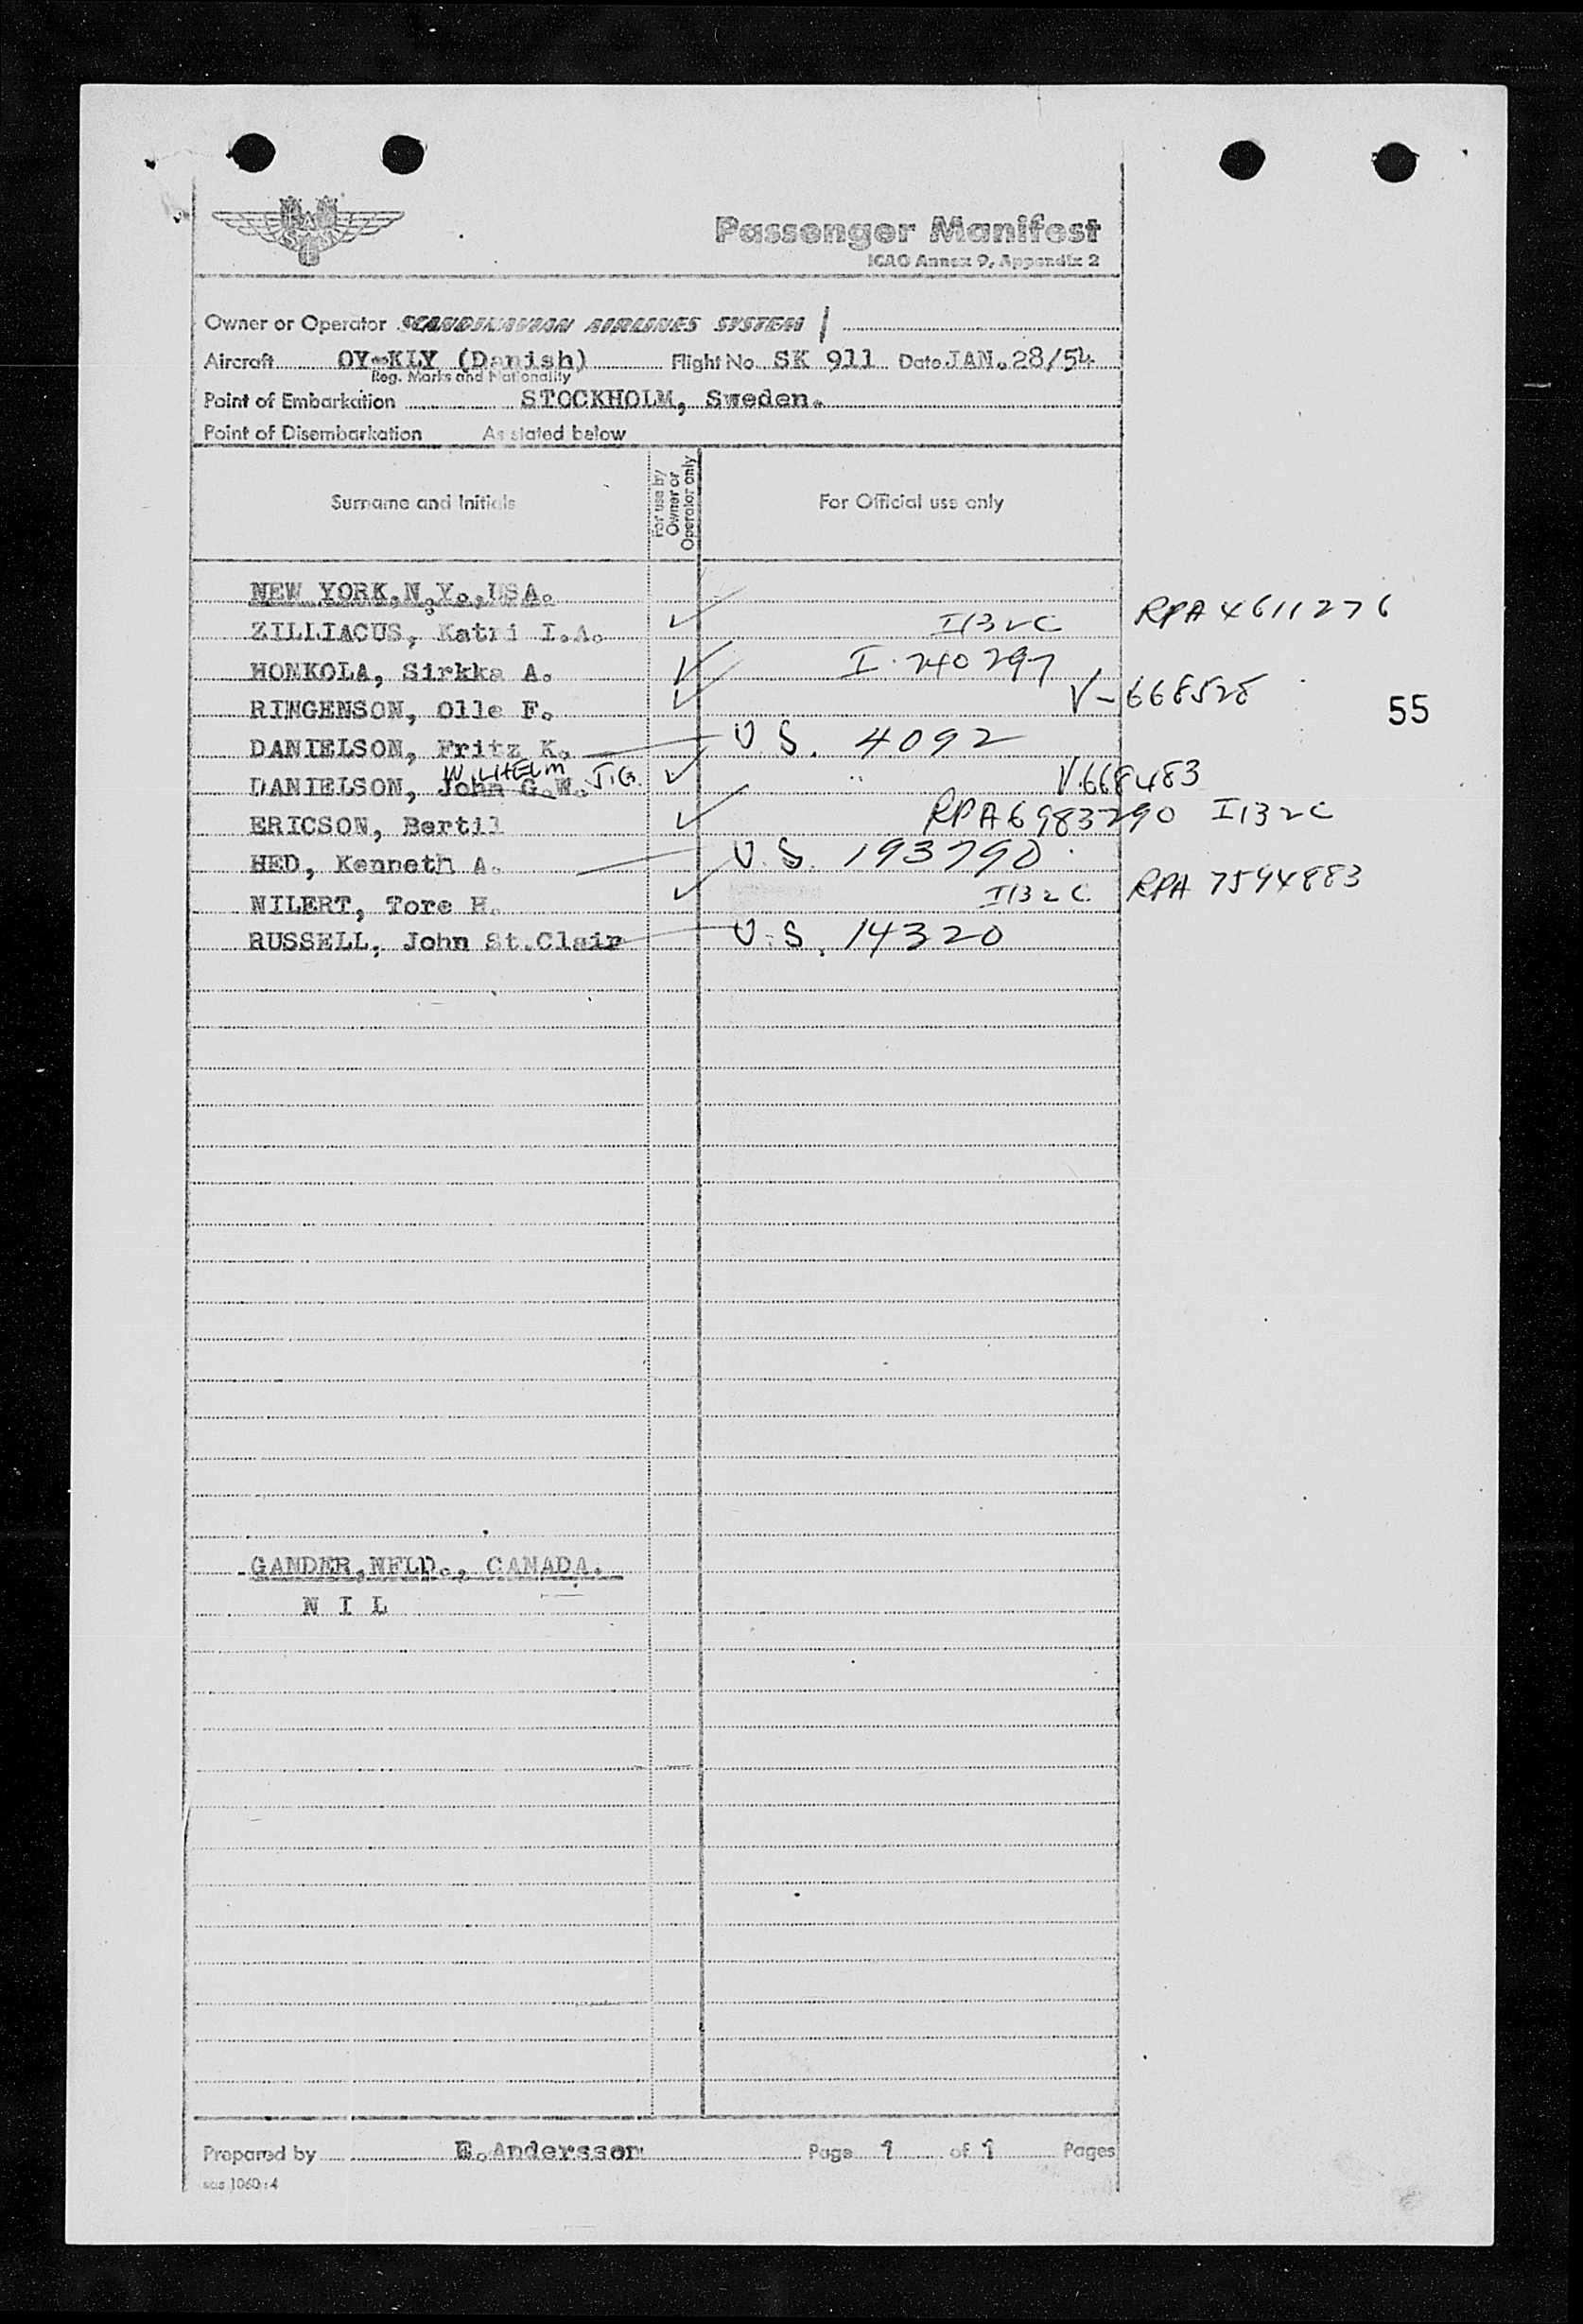 SAS
Passenger Manifest
ICAO Annex 9, Appendix 2
Owner or Operator SCANDINAVIAN AIRLINES SYSTEM /
Aircraft OY-KLY (Danish) Flight No. SK 911 Date JAN.28/54
Reg. Marks and Nationality
Point of Embarkation STOCKHOLM, Sweden.
Point of Disembarkation As stated below
Surname and Initials For use by Owner or Operator only For Official use only
NEW YORK,N.Y.,USA.
ZILLIACUS, Katri I.A. ✓ I132C RPA 4611276
HONKOLA, Sirkka A. ✓ I.240297
RINGENSON, Olle F. ✓ V-668528
55
DANIELSON, Fritz K. — U.S. 4092
WILHELM
DANIELSON, John G.W. J.G. ✓ V.668483
ERICSON, Bertil ✓ RPA6983290 I132C
HED, Kenneth A. — U.S. 193790
NILERT, Tore H. ✓ I132C. RPA 7594883
RUSSELL, John St.Clair — U.S. 14320
GANDER,NFLD., CANADA.
N I L
Prepared by E.Andersson Page 1 of 1 Pages
sas 1060:4